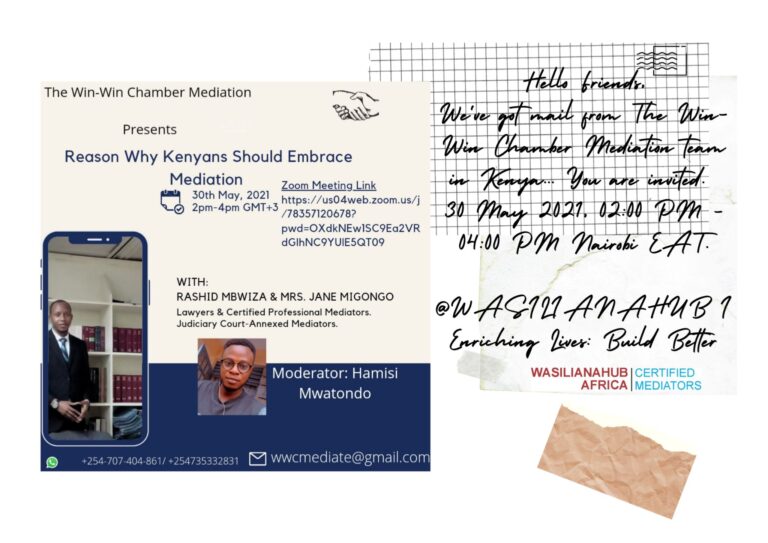 The Win-Win Chamber Mediation
Presents
Reason Why Kenyans Should Embrace
Mediation
30th May, 2021
2pm-4pm GMT+3
Zoom Meeting Link
https://us04web.zoom.us/j
/78357120678?
pwd=OXdkNEw1SC9Ea2VR
dGlhNC9YUlE5QT09
WITH:
RASHID MBWIZA & MRS. JANE MIGONGO
Lawyers & Certified Professional Mediators.
Judiciary Court-Annexed Mediators.
Moderator: Hamisi
Mwatondo
+254-707-404-861/ +254735332831
wwcmediate@gmail.com
Hello friends,
We've got mail from The Win-
Win Chamber Mediation team
in Kenya... You are invited.
30 May 2021, 02:00 PM -
04:00 PM Nairobi EAT.
@WASILIANAHUB1
Enriching Lives: Build Better
WASILIANAHUB | CERTIFIED
AFRICA | MEDIATORS